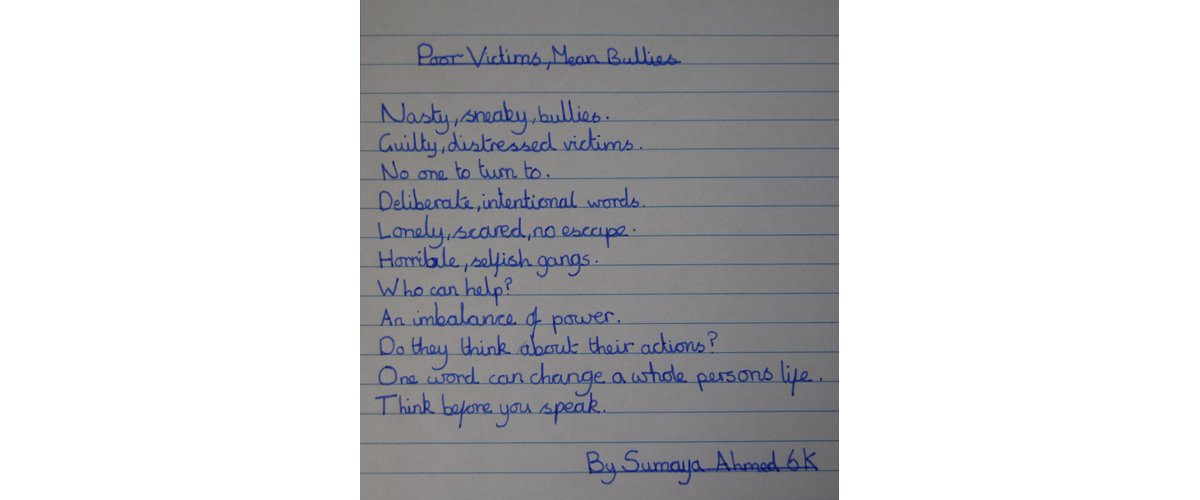 Poor Victims, Mean Bullies
Nasty, sneaky, bullies.
Guilty, distressed victims.
No one to turn to.
Deliberate, intentional words.
Lonely, scared, no escape.
Horrible, selfish gangs.
Who can help?
An imbalance of power.
Do they think about their actions?
One word can change a whole persons life.
Think before you speak.
By Sumaya Ahmed 6K